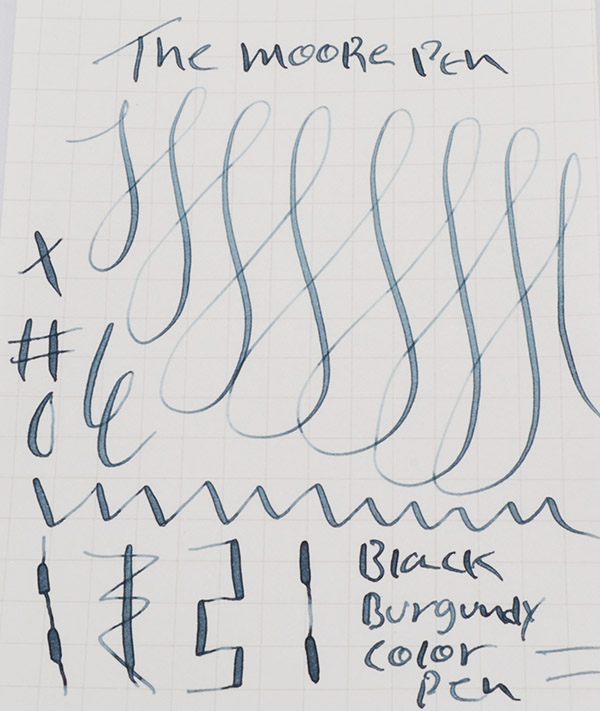 The Moore Pen
X
#
0
Black
Burgundy
Color
Pen